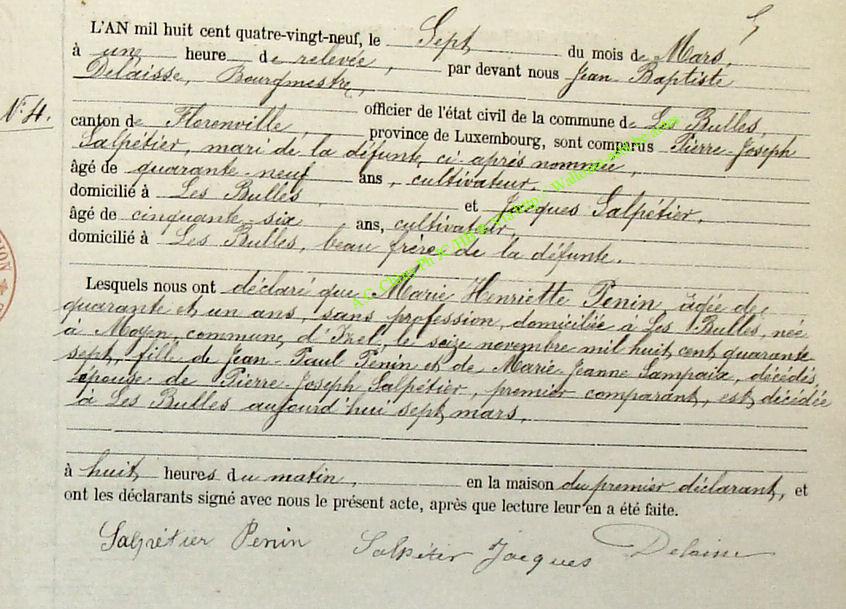 5
L'AN mil huit cent quatre-vingt-neuf, le Sept du mois de Mars,
à une heure de relevée, par devant nous Jean Baptiste
Delaisse, Bourgmestre,
N° 4.
officier de l'état civil de la commune de Les Bulles,
canton de Florenville, province de Luxembourg, sont comparus Pierre-Joseph
Salpétier, mari de la défunte ci-après nommée,
âgé de quarante-neuf ans, cultivateur.
domicilié à Les Bulles, et Jacques Salpétier,
âgé de cinquante-six ans, cultivateur,
domicilié à Les Bulles, beau frère de la défunte.
Lesquels nous ont déclaré que Marie Henriette Penin, âgée de
quarante et un ans, sans profession, domiciliée à Les Bulles, née
à Moyen, commune d'Izel, le seize novembre mil huit cent quarante
sept, fille de Jean-Paul Penin et de Marie-Jeanne Lampaix, décédés,
épouse de Pierre-Joseph Salpétier, premier comparant, est décédée
à Les Bulles aujourd'hui sept mars,
à huit heures du matin, en la maison du premier déclarant, et
ont les déclarants signé avec nous le présent acte, après que lecture leur en a été faite.
Salpétier Penin Salpétier Jacques Delaisse